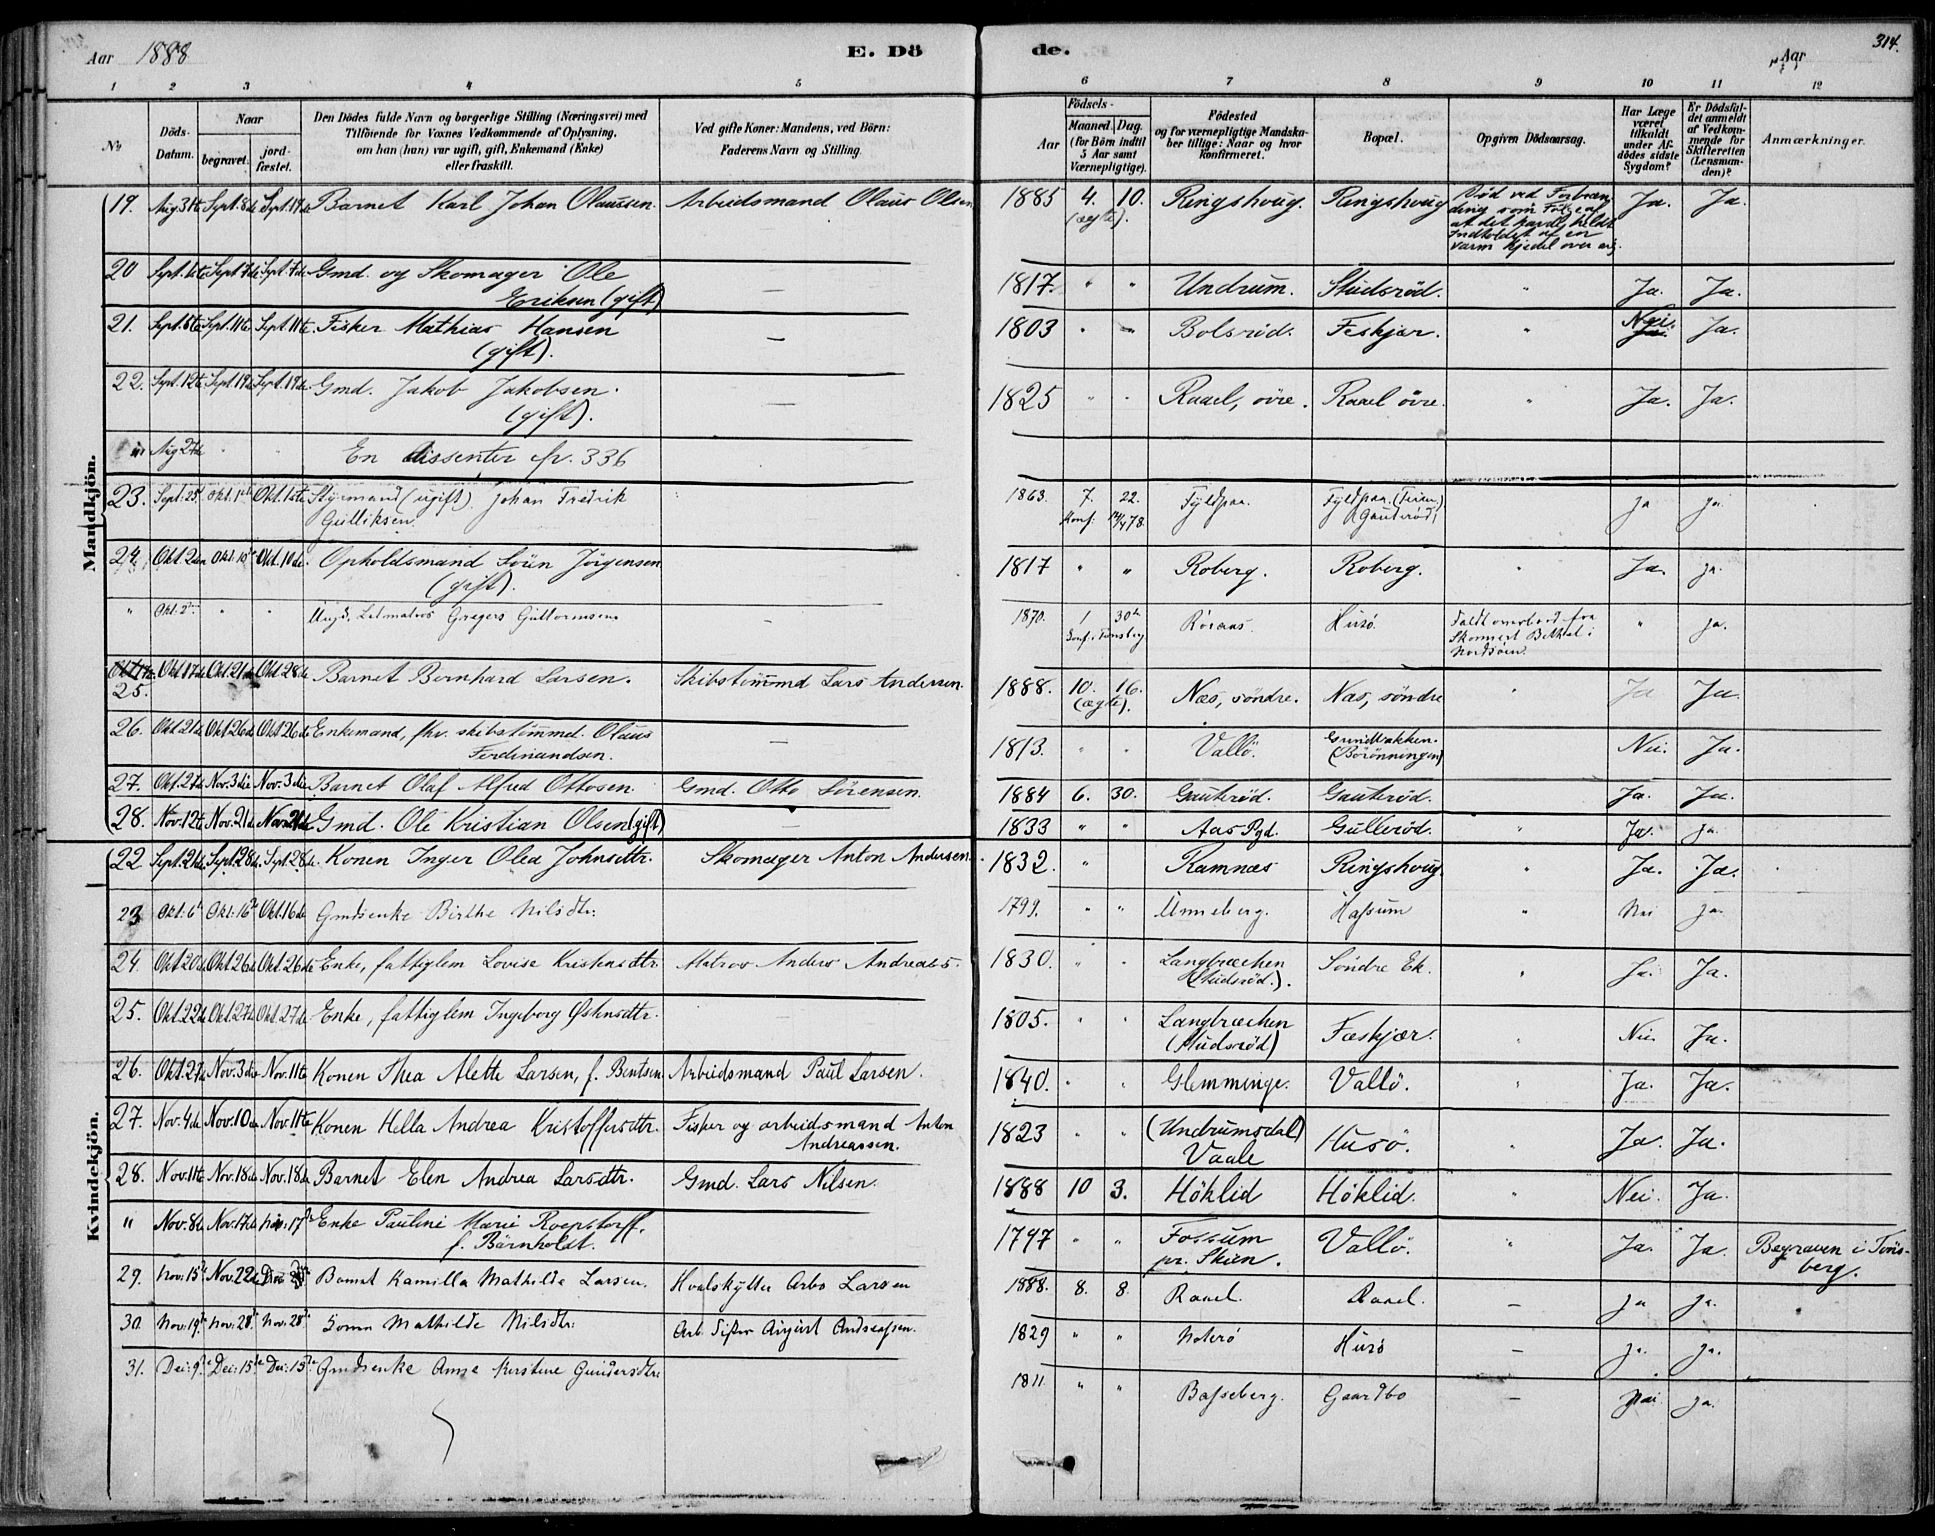 Aar 1888 E. Dö de. Aar 314.
1 2 3 4 5 6 7 8 9 10 11 12
No
Döds-Datum.
Naar
begravet.
jordfæstet.
Den Dödes fulde Navn og borgerlige Stilling (Næringsvei) med
Tilföiende for Voxnes Vedkommende af Oplysning,
om han (hun) var ugift, gift, Enkemand (Enke)
eller fraskilt.
Ved gifte Koner: Mandens, ved Börn:
Faderens Navn og Stilling.
Födsels-
Aar
Maaned. Dag.
(for Börn indtil
5 Aar samt
Værnepligtige).
Födested
og for værnepligtige Mandskaber tillige: Naar og hvor
konfirmeret.
Bopæl.
Opgiven Dödsaarsag.
Har Læge
været
tilkaldt
under Afdödes sidste
Sygdom?
Er Dödsfaldet anmeldt
af Vedkommende for
Skifteretten
(Lensmanden)?
Anmærkninger.
Mandkjön.
19. Aug 31te Sept. 8de Sept. 19de Barnet Karl Johan Olaussen. Arbeidsmand Olaus Olsen 1885 4. 10. (ægte). Ringshoug. Ringshoug Död ved Forbrænding som Fölge af at det havde heldt Indholdet af en varm Kjedel over sig. Ja. Ja.
20 Sept. 1ste Sept. 7de Sept. 7de Gmd. og Skomager Ole
Eriksen (gift) — 1817. " " Undrum. Studsröd. " Ja. Ja.
21. Sept. 5te Sept. 11te Sept. 11te Fisker Mathias Hansen
(gift). — 1803 " " Bolsröd. Feskjær. Nei. Ja.
22. Sept. 12te Sept. 19de Sept. 19de Gmd. Jakob Jakobsen.
(gift). — 1825 " " Raael, övre. Raael övre. " Ja. Ja.
" Aug 27de " " En dissenter cfr. 336
23. Sept. 25d Okt. 1ste Okt. 1ste Styrmand (ugift) Johan Fredrik
Gulliksen. 1863. 7. 22. Konf. Fyldpaa. Fyldpaa. (Teien) Gauteröd ja ja.
24. Okt. 2den Okt. 10de Okt. 10de. Opholdsmand Sören Jörgensen
(gift). 1817 " " Roberg. Roberg. " Ja. ja.
" Okt. 2 " " Ungk. Letmatros Gregers Guttormsen — 1870. 1 30te Konf. i Tunsberg. Röraas. Husö. Faldt overbord fra
Skonnert Bethel i
Nordsöen. " ja.
25. Okt. 17de Okt. 21de Okt 28de Barnet Bernhard Larsen. Skibstömmd Lars Andersen. 1888. 10. 16. (ægte). Næs, söndre. Næs, söndre " Ja Ja.
26. Okt 21de Okt 26de Okt 26de Enkemand, fhv. skibstömmd. Olaus
Ferdinandsen. — 1813. " " Vallö. Grundbakken.
(Börönningen) Nei. Ja.
27. Okt. 27de Nov. 3die Nov. 3die Barnet Olaf Alfred Ottosen. Gmd. Otto Sörensen. 1884 6. 30. Gauteröd. Gauteröd. Ja. Ja.
28. Nov. 12te Nov. 21de Nov. 21de Gmd. Ole Kristian Olsen (gift) — 1833 " " Aas Pgd. Gulleröd. " Ja. ja.
Kvindekjön.
22. Sept. 21de Sept. 28de Sept. 28de Konen Inger Olea Johnsdttr. Skomager Anton Andersen. 1832. " Ramnæs Ringshoug. " Ja. Ja.
23 Okt. 6te Okt. 16de Okt. 16de Gmdsenke Birthe Nilsdtr. 1799. " " Unneberg. Hassum " Nei ja.
24. Okt 20de Okt 26de Okt 26de Enke, fattiglem Lovise Kristnsdttr. Matros Anders Andreass. 1830. " " Langbrækken
(Studsröd). Söndre Ek. " Ja. Ja.
25. Okt. 22de Okt. 27de Okt. 27de Enke, fattiglem Ingeborg Johnsdttr. — 1805. " " Langbrækken
(Studsröd) Fæskjær. " Nei. Ja.
26. Okt. 27de Nov. 3die Nov. 11te Konen Thea Alette Larsen, f. Bentsen Arbeidsmand Paul Larsen. 1840. " " Glemminge. Vallö. " Ja. Ja.
27. Nov. 4de Nov. 10de Nov. 11te Konen Hella Andrea Kristoffersdttr. Fisker og arbeidsmand Anton
Andreassen. 1823 " " (Undrumsdal)
Vaale Husö. " Ja. Ja.
28. Nov. 11te Nov. 18de Nov. 18de Barnet Elen Andrea Larsdttr. Gmd. Lars Nilsen. 1888 10 3. Höklid Höklid. " Nei. Ja.
" Nov. 8de Nov. 17de Nov. 17de Enke Pauline Marie Roepstorff,
f. Bärnholdt. 1797 " " Fossum
pr. Skien. Vallö. " Ja. Ja. Begraven i Tönsberg.
29. Nov. 15de Nov. 22de Dec Barnet Kamilla Mathilde Larsen. Hvalskytter Arbo Larsen 1888. 8. 8. Raael. Raael. — ja ja.
30. Nov. 19de Nov. 28de Nov. 28de Konen Mathilde Nilsdtr. Arb. Fisker August Andreassen. 1829 " " Noterö Husö — ja. ja.
31. Dec. 9de Dec. 15de Dec. 15de Gmdsenke Anne Kirstine Gundersdttr 1811. " " Basseberg. Gaardbo — Nei ja.